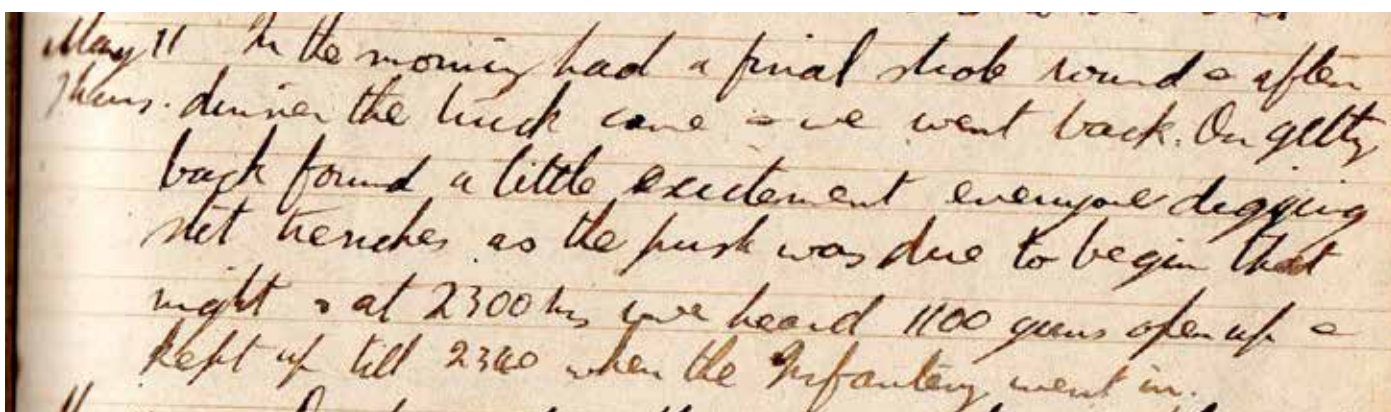 May 11 In the morning had a final stroll round & after
Thurs. dinner the truck came & we went back. On getting
back found a little excitement everyone digging
slit trenches as the push was due to begin that
night & at 2300 hrs we heard 1100 guns open up &
kept up till 2340 when the Infantry went in.